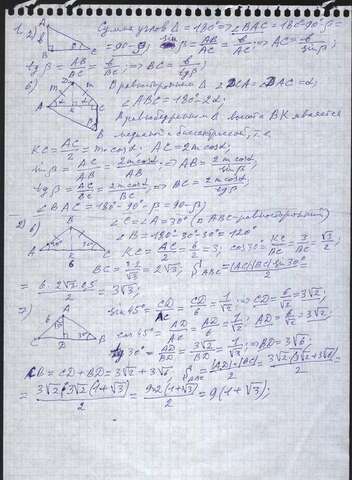 1. а) Сумма углов Δ = 180° => ∠BAC = 180°-90°-β=
= 90°-β; sin β = AB/AC = в/AC; => AC = в/sin β;
tg β = AB/BC = в/BC; => BC = в/tg β;
б) В равностороннем Δ ∠DCA = ∠DAC = α;
∠ABC = 180°-2α;
В равнобедренном Δ высота BK является
медианой и биссектрисой, т.е.
KC = AC/2 = m cosα. AC = 2m cosα;
sin β = AC/AB = 2m cosα/AB => AB = 2m cosα/sin β;
tg β = AC/BC = 2m cosα/BC; => BC = 2m cosα/tg β;
∠BAC = 180°-90°-β = 90-β;
2) б) ∠C = ∠A = 30° (Δ ABC - равносторонний)
∠B = 180°-30°-30° = 120°
KC = AC/2 = 6/2 = 3; cos 30° = KC/BC = 3/BC = √3/2;
BC = 2·3/√3 = 2√3; S ABC = |AC||BC| sin 30°/2 =
= 6·2√3·0,5/2 = 3√3;
7) sin 45° = CD/AC = CD/6 = 1/√2; => CD = 6/√2 = 3√2;
cos 45° = AD/AC = AD/6 = 1/√2; AD = 6/√2 = 3√2;
tg 30° = AD/BD = 3√2/BD = 1/√3; => BD = 3√6;
CB = CD + BD = 3√2 + 3√6; S ABC = |AD||BC|/2 = 3√2(3√2+3√6)/2 =
= 3√2·3√2(1+√3)/2 = 9·2(1+√3)/2 = 9(1+√3);